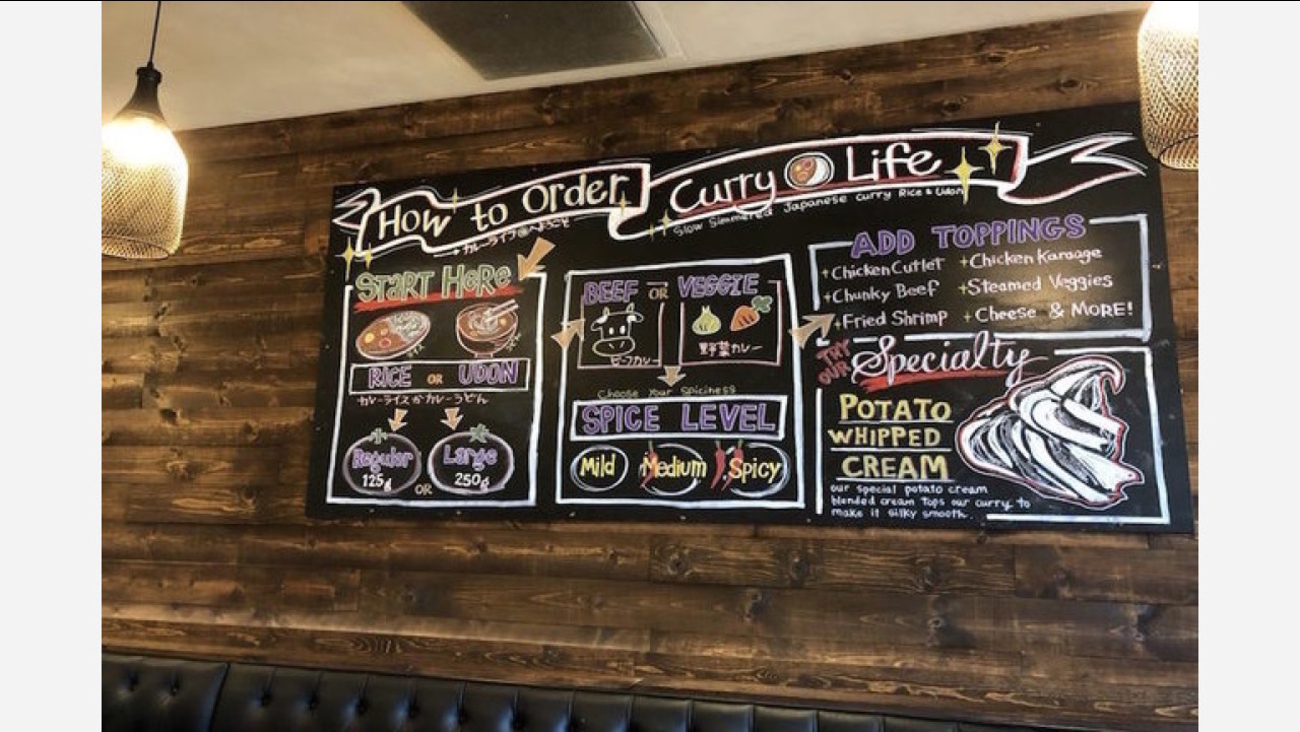 How to Order
Curry Life
Slow Simmered Japanese curry Rice & Udon
カレーライフ@へようこそ
START HERE
RICE OR UDON
カレーライスかカレーうどん
Regular
125g
OR
Large
250g
BEEF OR VEGGIE
ビーフカレー
野菜カレー
Choose Your Spiciness
SPICE LEVEL
Mild
Medium
Spicy
ADD TOPPINGS
+Chicken Cutlet +Chicken Karaage
+Chunky Beef +Steamed Veggies
+Fried Shrimp +Cheese & MORE!
TRY OUR Specialty
POTATO
WHIPPED
CREAM
our special potato cream
blended cream Tops our curry to
make it silky smooth.